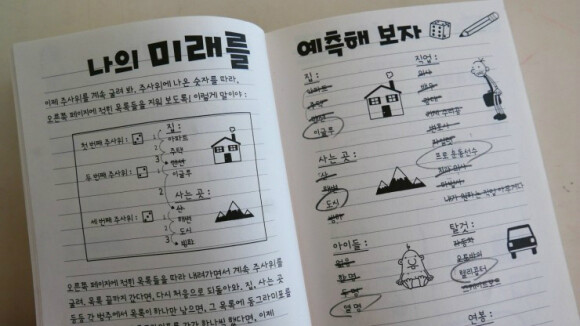 나의 미래를
이제 주사위를 계속 굴려 봐. 주사위에 나온 숫자를 따라,
오른쪽 페이지에 적힌 목록들을 지워 보도록! 이렇게 말이야:
첫 번째 주사위:
집:
1 아파트
2 주택
3 맨션
두 번째 주사위:
1 이글루
사는 곳:
2 산
세 번째 주사위:
1 해변
2 도시
3 빙하
오른쪽 페이지에 적힌 목록들을 따라 내려가면서 계속 주사위를
굴려. 목록 끝까지 간다면, 다시 처음으로 되돌아와. 집, 사는 곳
등등 각 범주에서 목록이 하나만 남으면, 그 목록에 동그라미를
예측해 보자
집:
아파트
주택
맨션
이글루
사는 곳:
산
해변
도시
빙하
아이들:
없음
한 명
두 명
열 명
직업:
의사
배우
프로 운동선수
(내가 원하는 직업 아무거나)
탈것:
자동차
오토바이
헬리콥터
연봉: